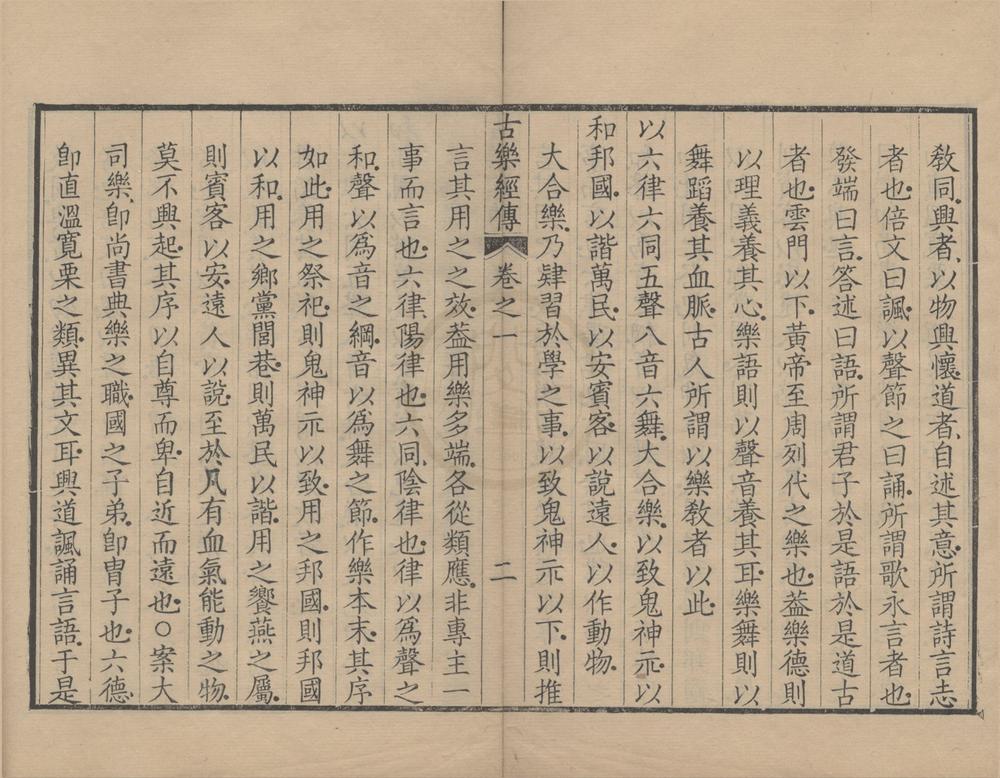 敎同。興者、以物興懷。道者、自述其意。所謂詩言志
者也。倍文曰諷。以聲節之曰誦。所謂歌永言者也。
發端曰言。答述曰語。所謂君子於是語於是道古
者也。雲門以下、黃帝至周列代之樂也。葢樂德則
以理義養其心。樂語則以聲音養其耳。樂舞則以
舞蹈養其血脈。古人所謂以樂敎者以此。
以六律六同五聲八音六舞。大合樂。以致鬼神示。以
和邦國。以諧萬民。以安賓客。以說遠人。以作動物。
大合樂、乃肄習於學之事。以致鬼神示以下、則推
古樂經傳 卷之一 二
言其用之之效。葢用樂多端。各從類應。非專主一
事而言也。六律、陽律也。六同、陰律也。律以爲聲之
和。聲以爲音之綱。音以爲舞之節。作樂本末、其序
如此。用之祭祀。則鬼神示以致。用之邦國。則邦國
以和。用之鄉黨閭巷。則萬民以諧。用之饗燕之屬。
則賓客以安。遠人以說。至於凡有血氣能動之物。
莫不興起。其序以自尊而卑。自近而遠也。○案大
司樂、卽尚書典樂之職。國之子弟。卽胄子也。六德
卽直溫寬栗之類。異其文耳。興道諷誦言語。于是